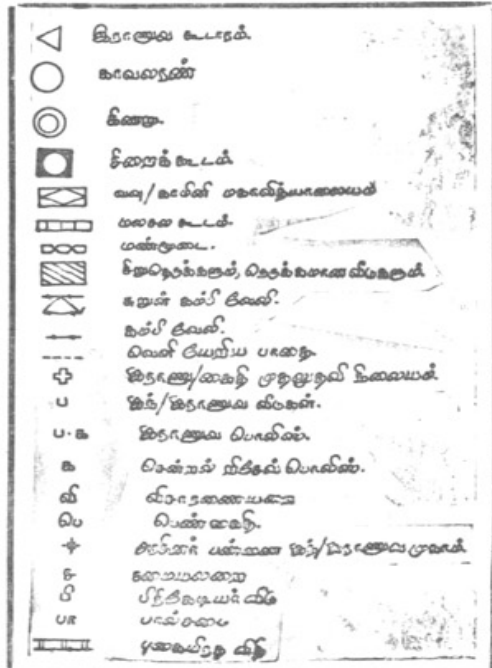 இராணுவ கூடாரம்.
காவலரண்
கிணறு.
சிறைக்கூடம்.
வவு/காமினி மகாவித்யாலையம்
மலசல கூடம்.
மண்மூடை.
சிறுதெருக்களும், நெருக்கமான வீடுகளும்
சுறுள் கம்பி வேலி.
கம்பி வேலி.
வெளியேறிய பாதை.
இராணு/கைதி முதலுதவி நிலையம்
ப இந்/இராணுவ வீடுகள்.
ப.க இராணுவ பொலிஸ்.
க சென்றல் றிசேவ் பொலிஸ்.
வி விசாரணையறை
பெ பெண்கைதி.
பண்ணை இந்/இராணுவ முகாம்
ச சமையலறை
பி பிரிகேடியர் வீடு
பா
புகையிரத வீதி